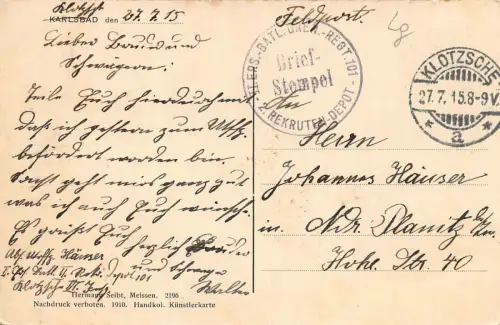 Klotzsche
KARLSBAD den 27.7.15
Feldpost.
Lieber Bruder und
Schwägerin:
Teile Euch hierdurch mit
daß ich gestern zum Utffz.
befördert worden bin.
Sonst geht mirs ganz gut
was ich auch Euch wünsche.
Es grüßt Euch
herzlich Bruder
und Schwager
Walter
Abs. Utffz. Häuser
I. Ers. Batl. Rekr. Depot 101
Klotzsche
ERS.-BATL. GREN.-REGT. 101
Brief-
Stempel
2. REKRUTEN-DEPOT
KLOTZSCHE
27.7.15.8-9V.
* a *
An
Herrn
Johannes Häuser
in Ndr. Planitz
Hohe Str. 40
Hermann Seibt, Meissen. 2196
Nachdruck verboten. 1910. Handkol. Künstlerkarte